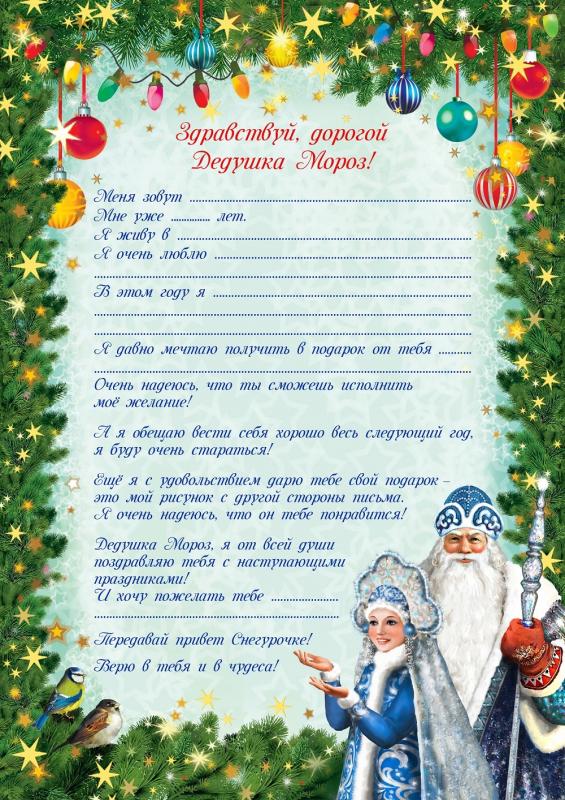 Здравствуй, дорогой
Дедушка Мороз!
Меня зовут ..........................................................................
Мне уже ............... лет.
Я живу в ..............................................................................
Я очень люблю ....................................................................
..................................................................................................
В этом году я ....................................................................
..................................................................................................
..................................................................................................
Я давно мечтаю получить в подарок от тебя ...........
..................................................................................................
Очень надеюсь, что ты сможешь исполнить
моё желание!
А я обещаю вести себя хорошо весь следующий год,
я буду очень стараться!
Ещё я с удовольствием дарю тебе свой подарок –
это мой рисунок с другой стороны письма.
Я очень надеюсь, что он тебе понравится!
Дедушка Мороз, я от всей души
поздравляю тебя с наступающими
праздниками!
И хочу пожелать тебе .......................
................................................................
Передавай привет Снегурочке!
Верю в тебя и в чудеса!